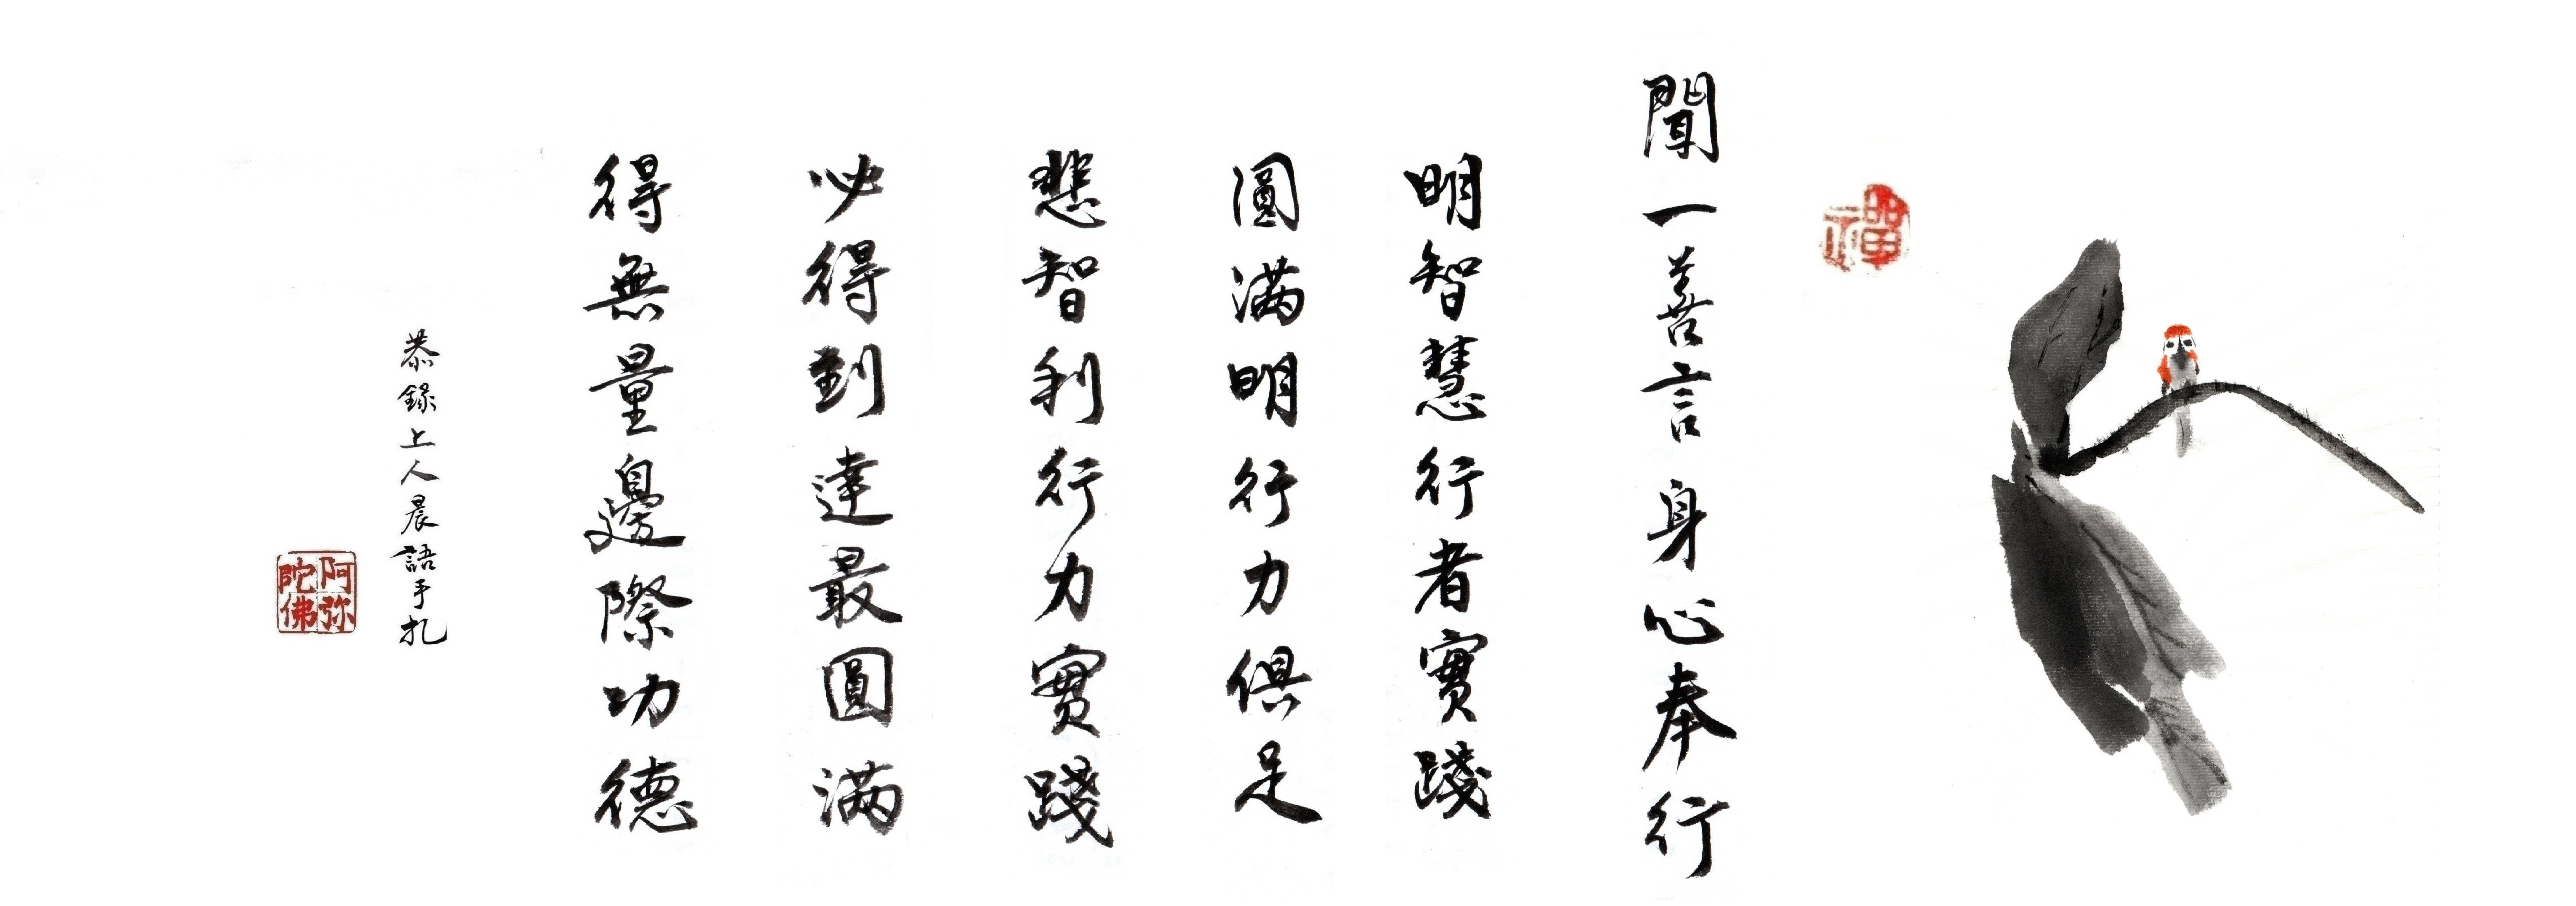 禪
聞一善言身心奉行
明智慧行者實踐
圓滿明行力俱足
悲智利行力實踐
必得到達最圓滿
得無量邊際功德
恭錄上人晨語手扎
阿弥陀佛